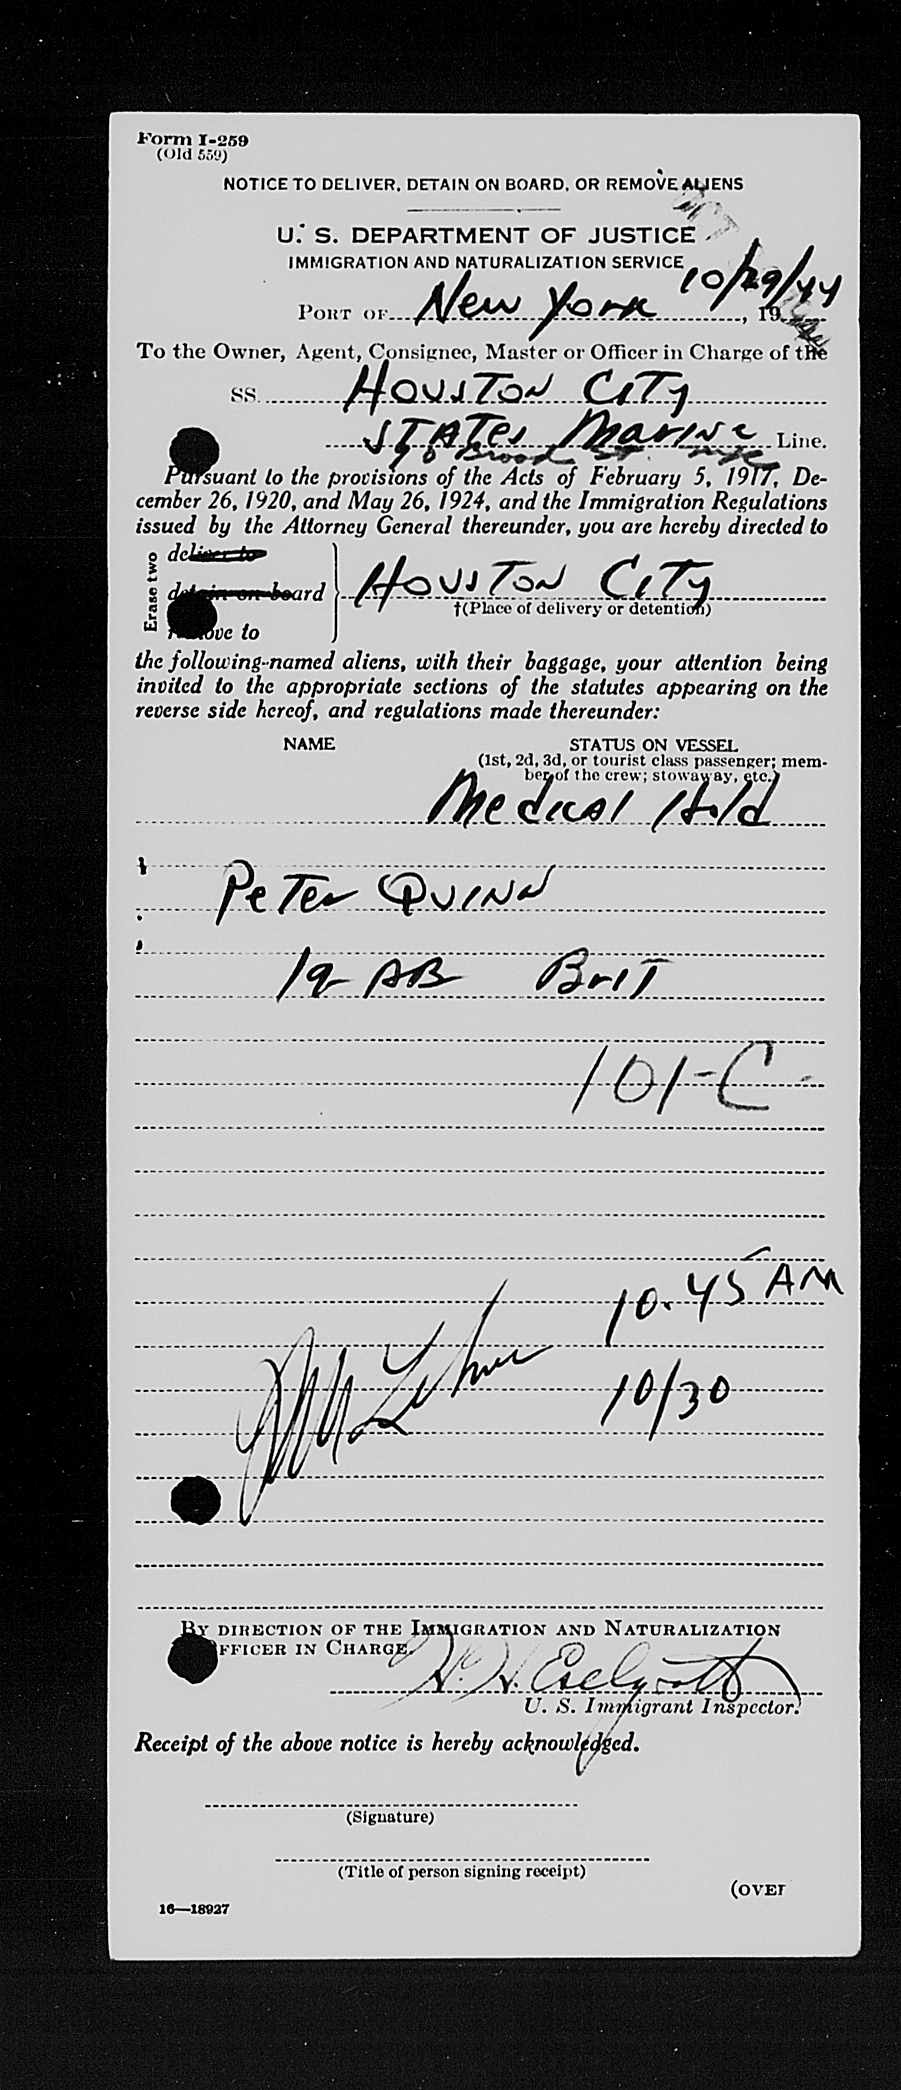 Form I-259
(Old 559)
NOTICE TO DELIVER, DETAIN ON BOARD, OR REMOVE ALIENS
U. S. DEPARTMENT OF JUSTICE
IMMIGRATION AND NATURALIZATION SERVICE
PORT OF New York 10/29/44, 19
To the Owner, Agent, Consignee, Master or Officer in Charge of the
SS. HOUSTON CITY
STATES MARINE Line.
90 Broad St. NYC
Pursuant to the provisions of the Acts of February 5, 1917, De-
cember 26, 1920, and May 26, 1924, and the Immigration Regulations
issued by the Attorney General thereunder, you are hereby directed to
Erase two
deliver to
detain on board HOUSTON CITY
†(Place of delivery or detention)
remove to
the following-named aliens, with their baggage, your attention being
invited to the appropriate sections of the statutes appearing on the
reverse side hereof, and regulations made thereunder:
NAME STATUS ON VESSEL
(1st, 2d, 3d, or tourist class passenger; mem-
ber of the crew; stowaway, etc.)
Medical Hold
Peter QUINN
19 AB Brit
101-C
10.45 AM
10/30
BY DIRECTION OF THE IMMIGRATION AND NATURALIZATION
OFFICER IN CHARGE
U. S. Immigrant Inspector.
Receipt of the above notice is hereby acknowledged.
(Signature)
(Title of person signing receipt)
(OVER
16—18927